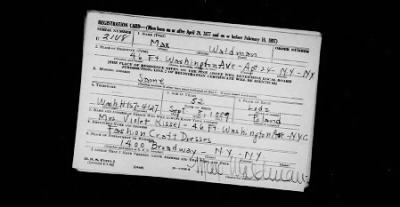 REGISTRATION CARD—(Men born on or after April 28, 1877 and on or before February 16, 1897)
SERIAL NUMBER 1. NAME (Print) ORDER NUMBER
U 2108 Max Waldman
2. PLACE OF RESIDENCE (Print)
46 Ft. Washington Ave - Apt 24 - NY - NY
[THE PLACE OF RESIDENCE GIVEN ON THE LINE ABOVE WILL DETERMINE LOCAL BOARD
JURISDICTION; LINE 2 OF REGISTRATION CERTIFICATE WILL BE IDENTICAL]
3. MAILING ADDRESS
Same
4. TELEPHONE 5. AGE IN YEARS 6. PLACE OF BIRTH
52 Lodz
1889 Poland
Mrs Violet Kissel - 46 Ft. Washington Ave - NYC
Fashion Craft Dresses
1400 Broadway - NY - NY
Max Waldman